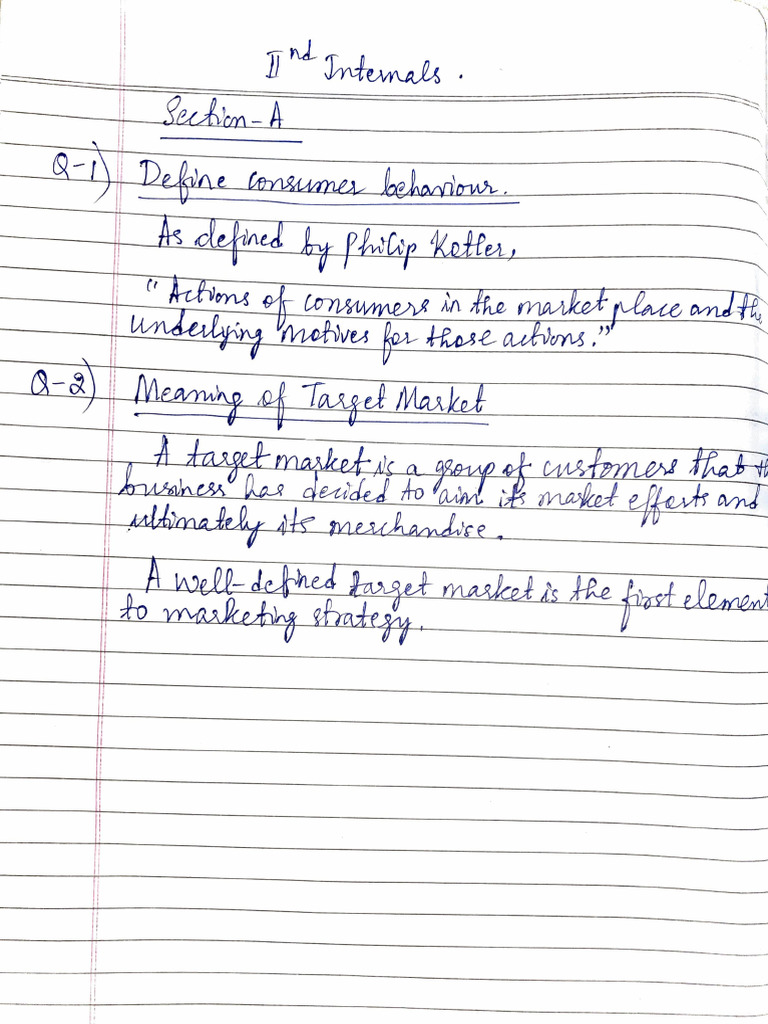 IInd Internals.
Section-A
Q-1) Define consumer behaviour.
As defined by Philip Kotler,
"Actions of consumers in the market place and the
underlying motives for those actions."
Q-2) Meaning of Target Market
A target market is a group of customers that th
business has decided to aim its market efforts and
ultimately its merchandise.
A well-defined target market is the first element
to marketing strategy.